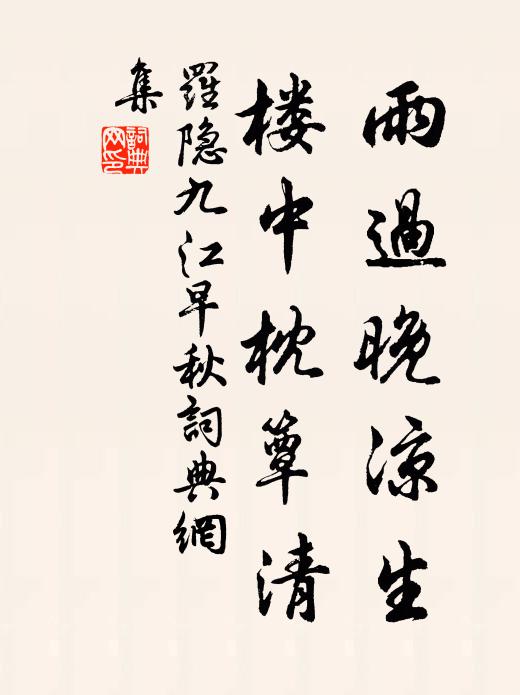 雨過晚涼生
楼中枕簟清
羅隐九江早秋詞典網
集
詞典
网印